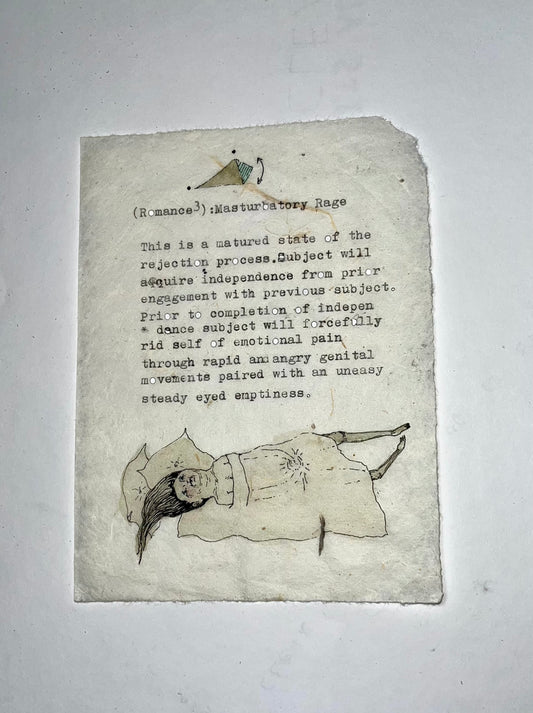 (Romance3):Masturbatory Rage
This is a matured state of the
rejection process.Subject will
acquire independence from prior
engagement with previous subject.
Prior to completion of indepen
* dance subject will forcefully
rid self of emotional pain
through rapid and angry genital
movements paired with an uneasy
steady eyed emptiness.